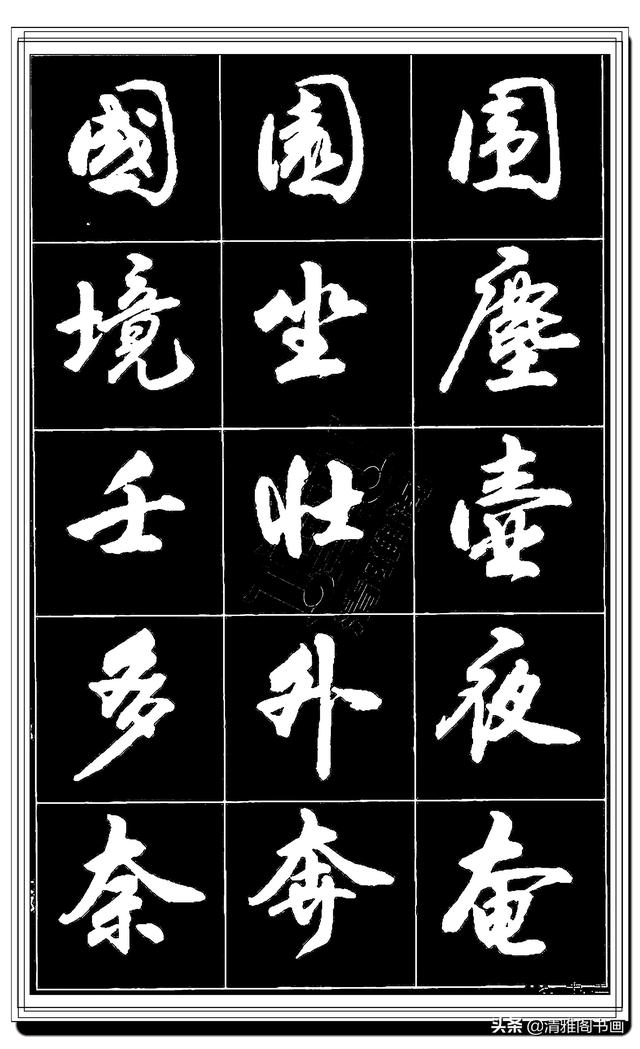 國 園 围
境 坐 塵
壬 壮 壺
多 外 夜
奈 奔 奄
头条 @清雅阁书画